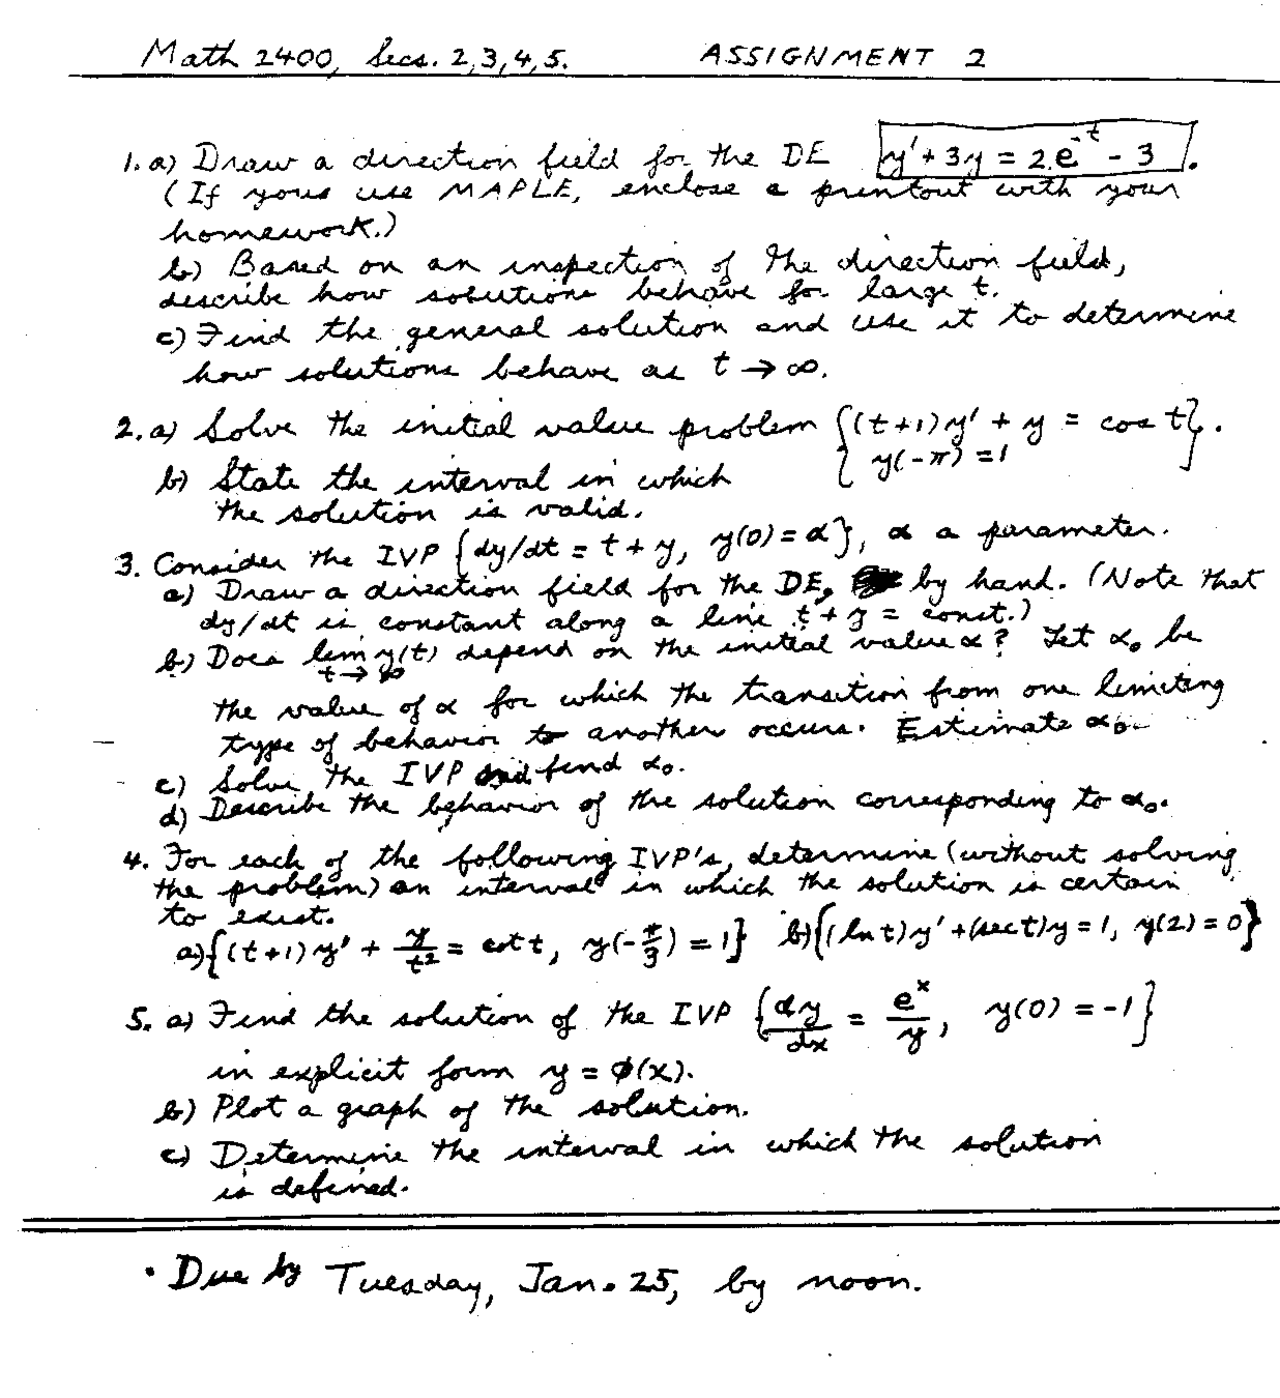 Math 2400, Secs. 2,3,4,5. ASSIGNMENT 2
1. a) Draw a direction field for the DE y' + 3y = 2e^{-t} - 3.
(If yous use MAPLE, enclose a printout with your
homework.)
b) Based on an inspection of the direction field,
describe how solutions behave for large t.
c) Find the general solution and use it to determine
how solutions behave as t → ∞.
2. a) Solve the initial value problem {(t+1)y' + y = cos t}.
y(-π) = 1
b) State the interval in which
the solution is valid.
3. Consider the IVP {dy/dt = t + y, y(0) = α}, α a parameter.
a) Draw a direction field for the DE, by hand. (Note that
dy/dt is constant along a line t + y = const.)
b) Does lim y(t) depend on the initial value α? Let α₀ be
t → ∞
the value of α for which the transition from one limiting
type of behavior to another occurs. Estimate α₀.
c) Solve the IVP and find α₀.
d) Describe the behavior of the solution corresponding to α₀.
4. For each of the following IVP's, determine (without solving
the problem) an interval in which the solution is certain
to exist.
a) {(t+1)y' + y/t² = cot t, y(-π/3) = 1} b) {(ln t)y' + (sec t)y = 1, y(2) = 0}
5. a) Find the solution of the IVP {dy/dx = e^x/y, y(0) = -1}
in explicit form y = φ(x).
b) Plot a graph of the solution.
c) Determine the interval in which the solution
is defined.
• Due by Tuesday, Jan. 25, by noon.